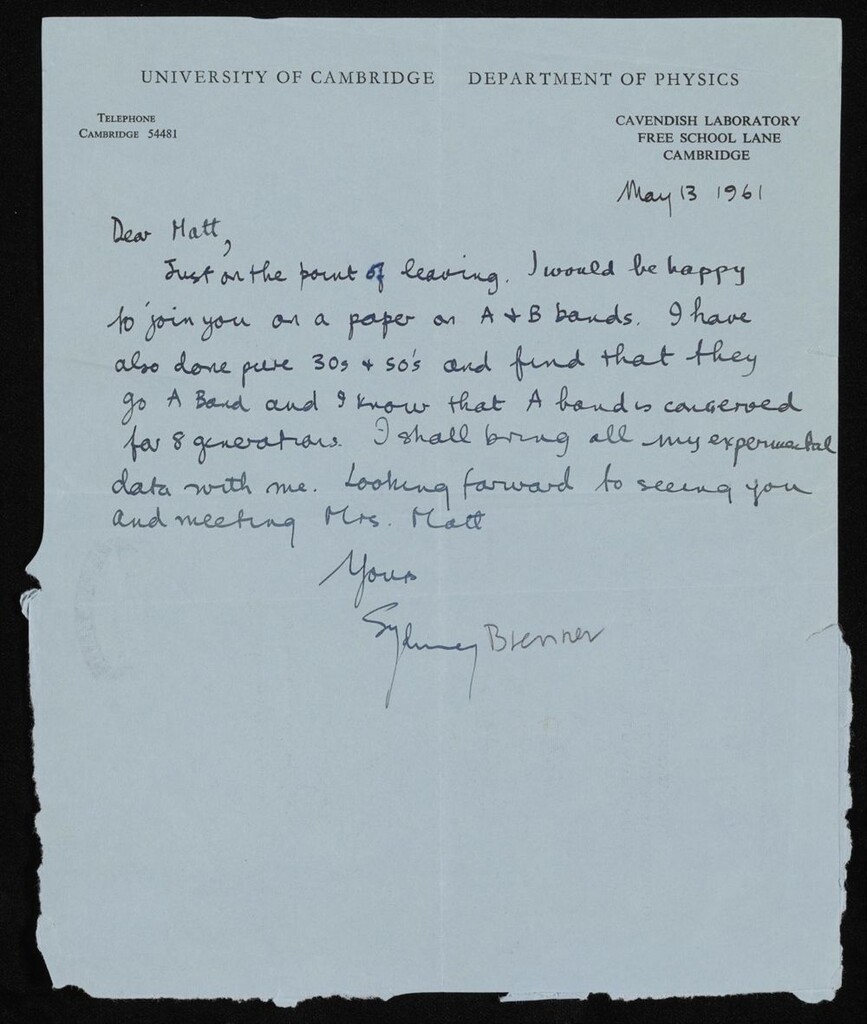 UNIVERSITY OF CAMBRIDGE DEPARTMENT OF PHYSICS
TELEPHONE
CAMBRIDGE 54481
CAVENDISH LABORATORY
FREE SCHOOL LANE
CAMBRIDGE
May 13 1961
Dear Matt,
Just on the point of leaving. I would be happy
to join you on a paper on A + B bands. I have
also done pure 30s + 50's and find that they
go A Band and I know that A band is conserved
for 8 generations. I shall bring all my experimental
data with me. Looking forward to seeing you
and meeting Mrs. Matt
Yours
Sydney Brenner